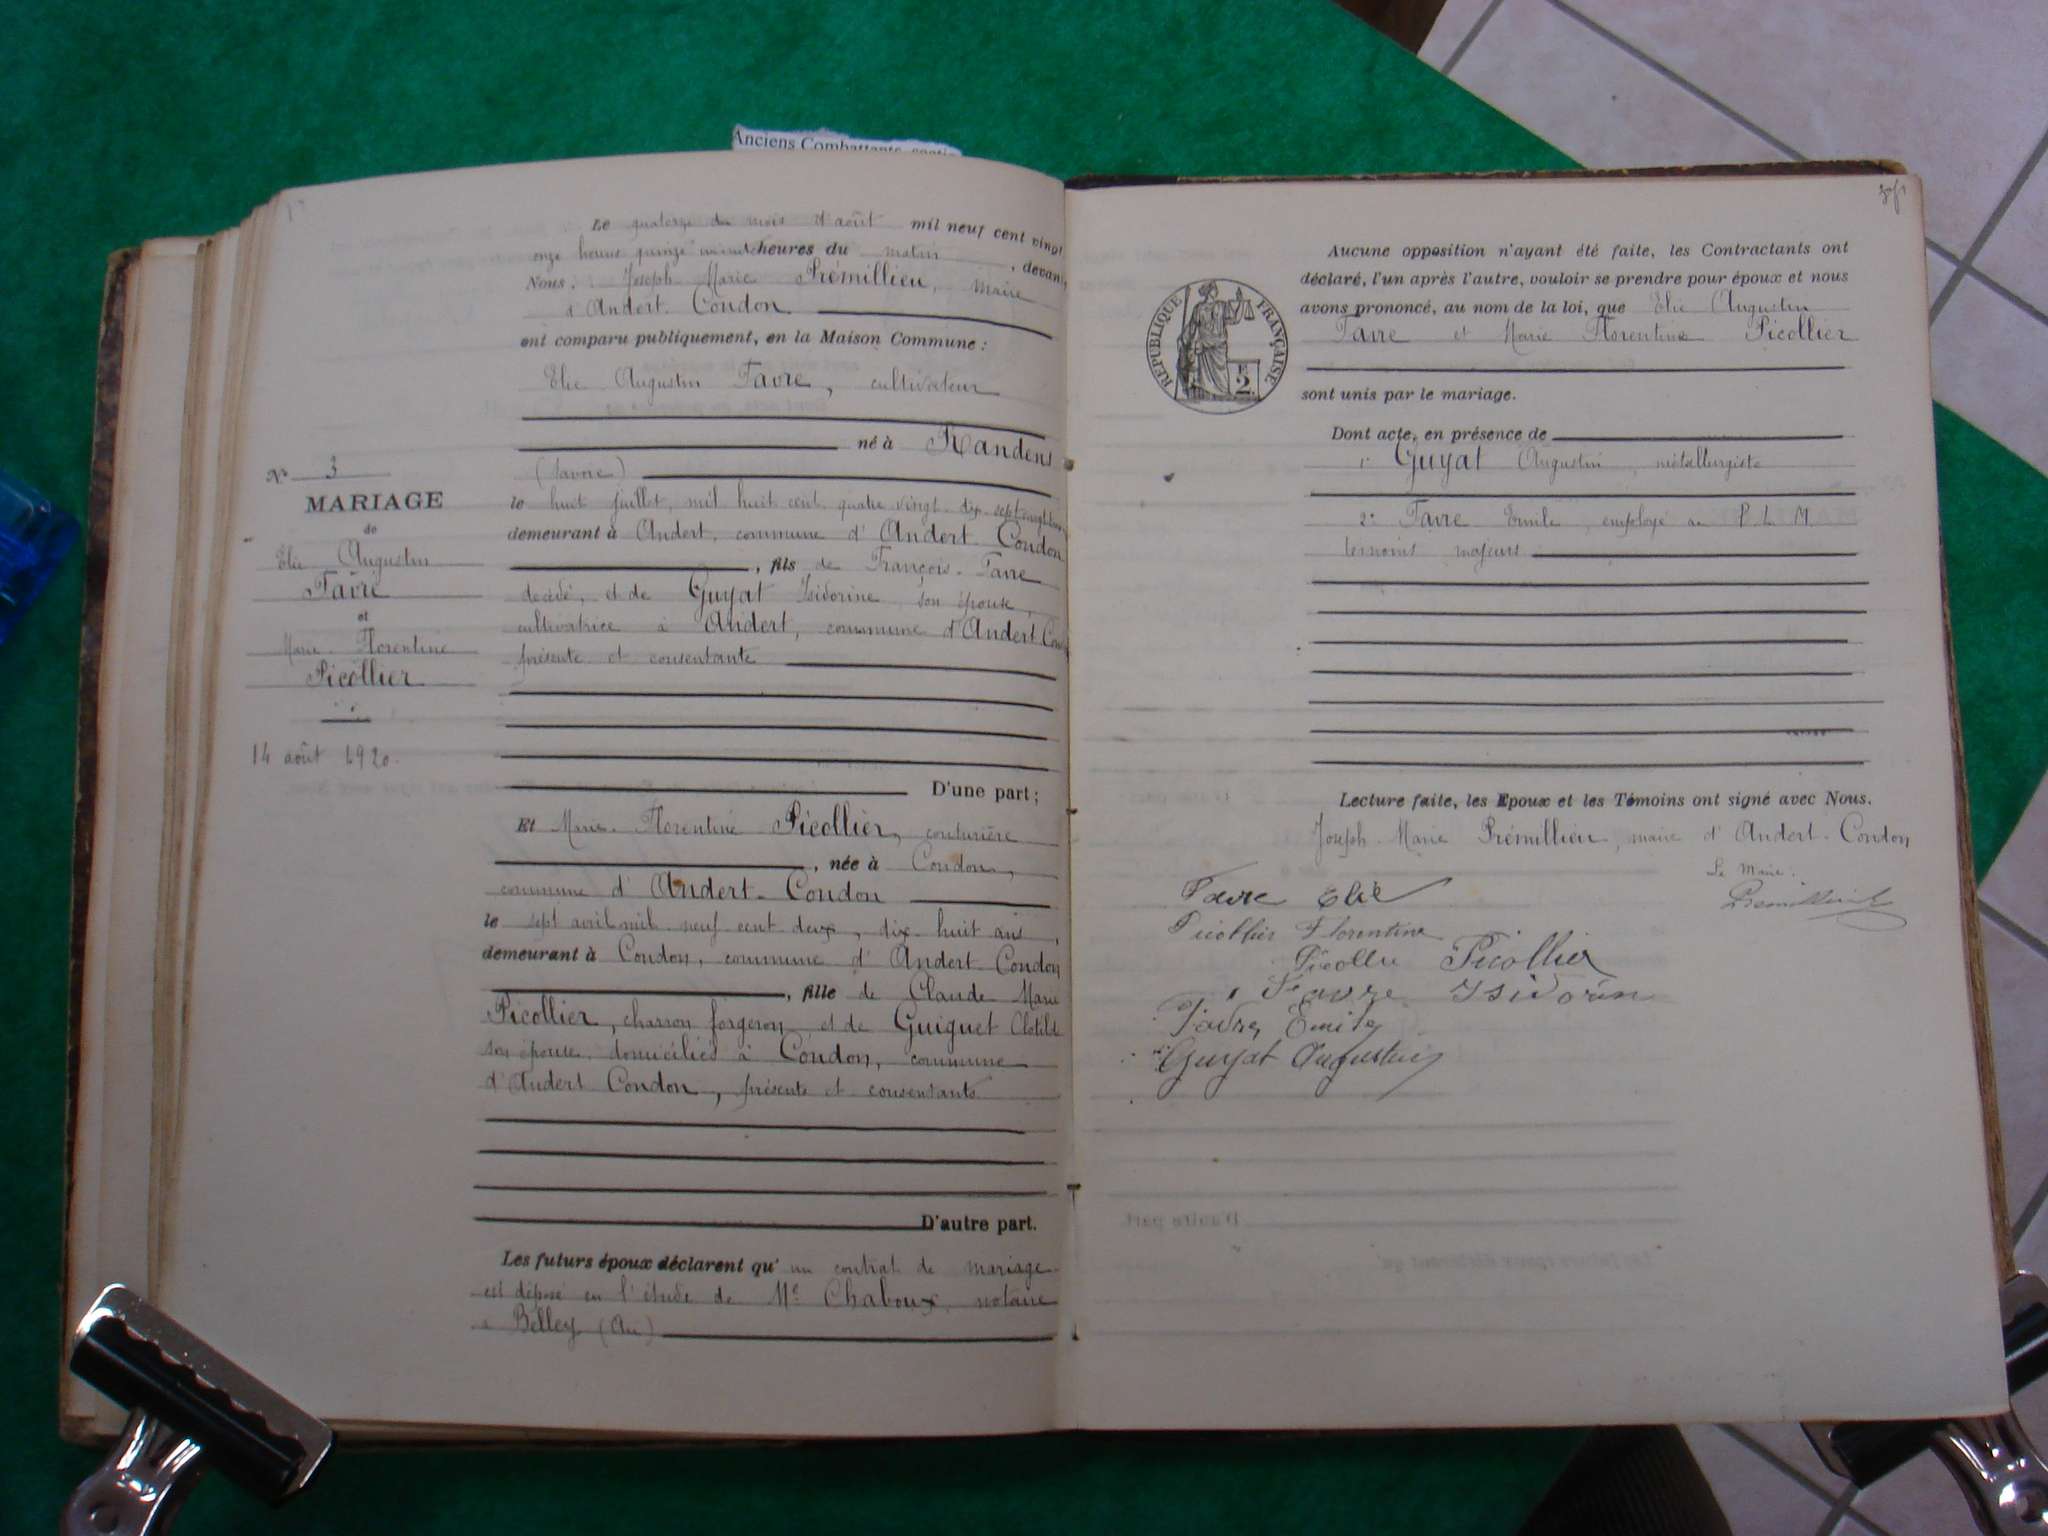 Anciens Combattants
Le quatorze du mois d'août mil neuf cent vingt
onze heures quinze minutes heures du matin, devant
Nous : Joseph Marie Prémillieu, maire
d'Andert-Condon
ont comparu publiquement, en la Maison Commune :
Elie Augustin Favre, cultivateur
né à Randens
(Savoie)
le huit juillet mil huit cent quatre vingt dix sept
demeurant à Andert, commune d'Andert-Condon
, fils de François Favre
décédé, et de Guyat Isidorine, son épouse,
cultivatrice à Andert, commune d'Andert Con
présente et consentante
D'une part ;
N° 3
MARIAGE
de
Elie Augustin
Favre
et
Marie Florentine
Picollier
14 août 1920.
Et Marie-Florentine Picollier, couturière
, née à Condon,
commune d'Andert-Condon
le sept avril mil neuf cent deux, dix huit ans,
demeurant à Condon, commune d'Andert-Condon
, fille de Claude Marie
Picollier, charron forgeron et de Guiguet Clotilde
son épouse, domiciliés à Condon, commune
d'Andert Condon, présents et consentants
D'autre part.
Les futurs époux déclarent qu'un contrat de mariage
est déposé en l'étude de Me Chaboux, notaire
à Belley (Ain)
Aucune opposition n'ayant été faite, les Contractants ont
déclaré, l'un après l'autre, vouloir se prendre pour époux et nous
avons prononcé, au nom de la loi, que Elie Augustin
Favre et Marie Florentine Picollier
sont unis par le mariage.
RÉPUBLIQUE FRANÇAISE
2
Dont acte, en présence de
1° Guyat Augustin, métallurgiste
2° Favre Emile, employé au P L M
témoins majeurs
Lecture faite, les Epoux et les Témoins ont signé avec Nous.
Joseph Marie Prémillieu, maire d'Andert-Condon
Le Maire.
Prémillieu
Favre Elie
Picollier Florentine
Picollier
Favre Isidorin
Favre Emile
Guyat Augustin